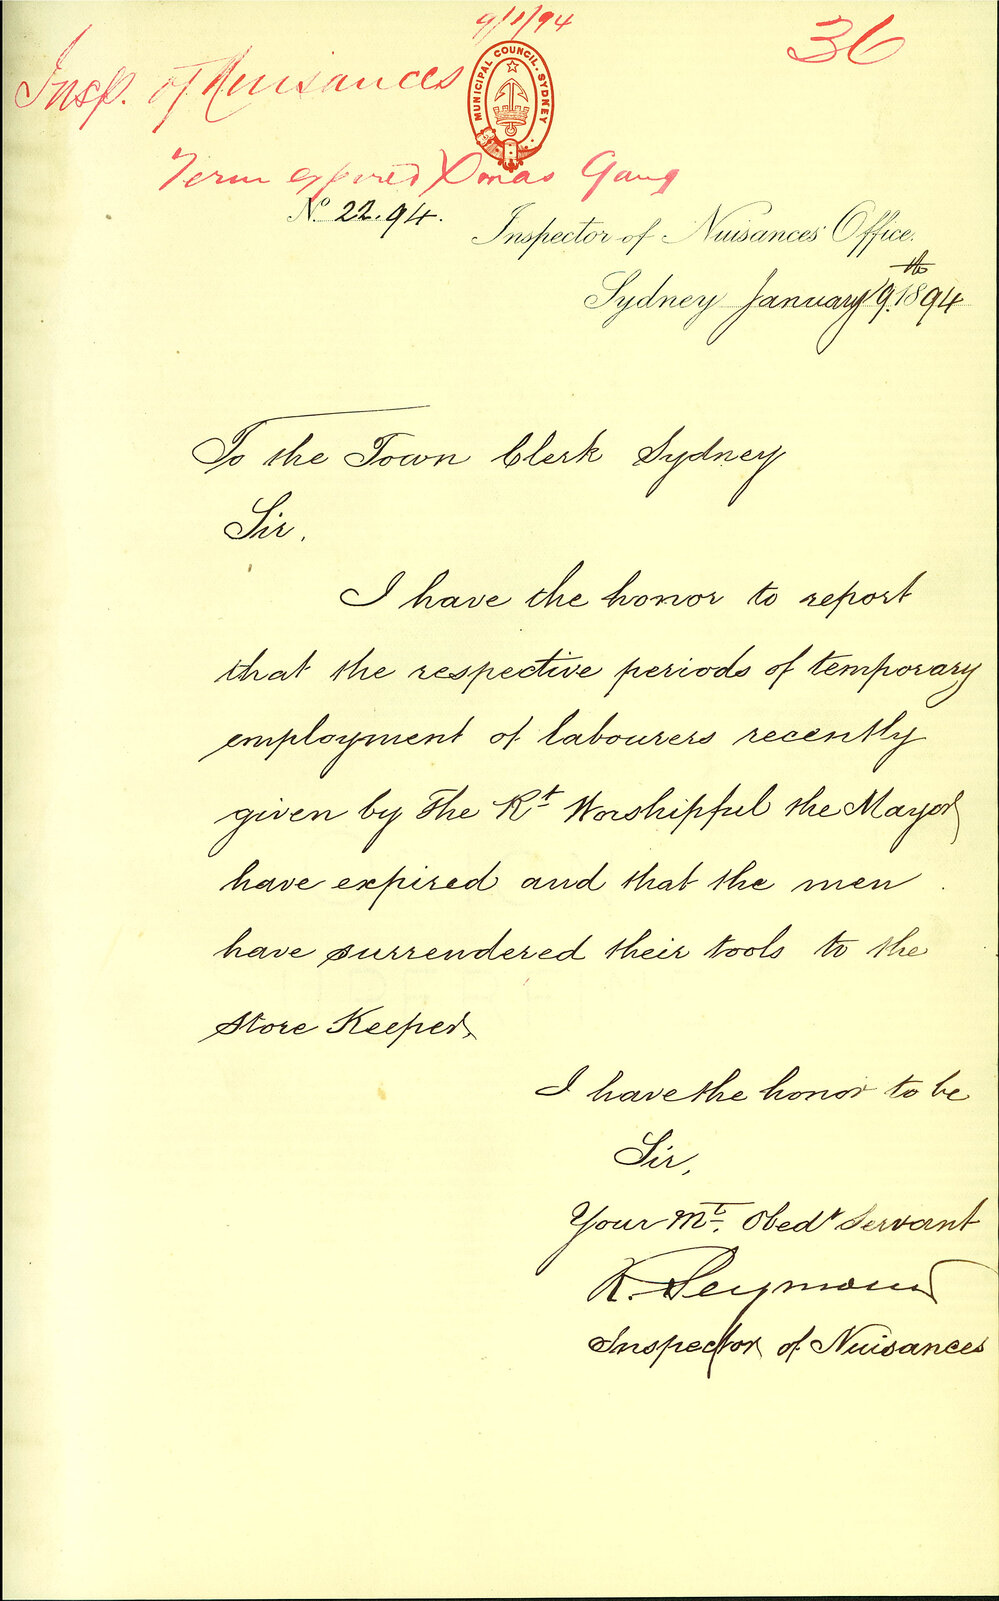 9/1/94
36
Insp. of Nuisances
MUNICIPAL COUNCIL. SYDNEY
Term expired Xmas Gang
No. 22.94.
Inspector of Nuisances' Office.
Sydney January 9th 1894
To the Town Clerk Sydney
Sir.
I have the honor to report
that the respective periods of temporary
employment of labourers recently
given by The Rt. Worshipful the Mayor
have expired and that the men
have surrendered their tools to the
Store Keeper.
I have the honor to be
Sir,
Your Mt. Obedt Servant
R. Seymour
Inspector of Nuisances